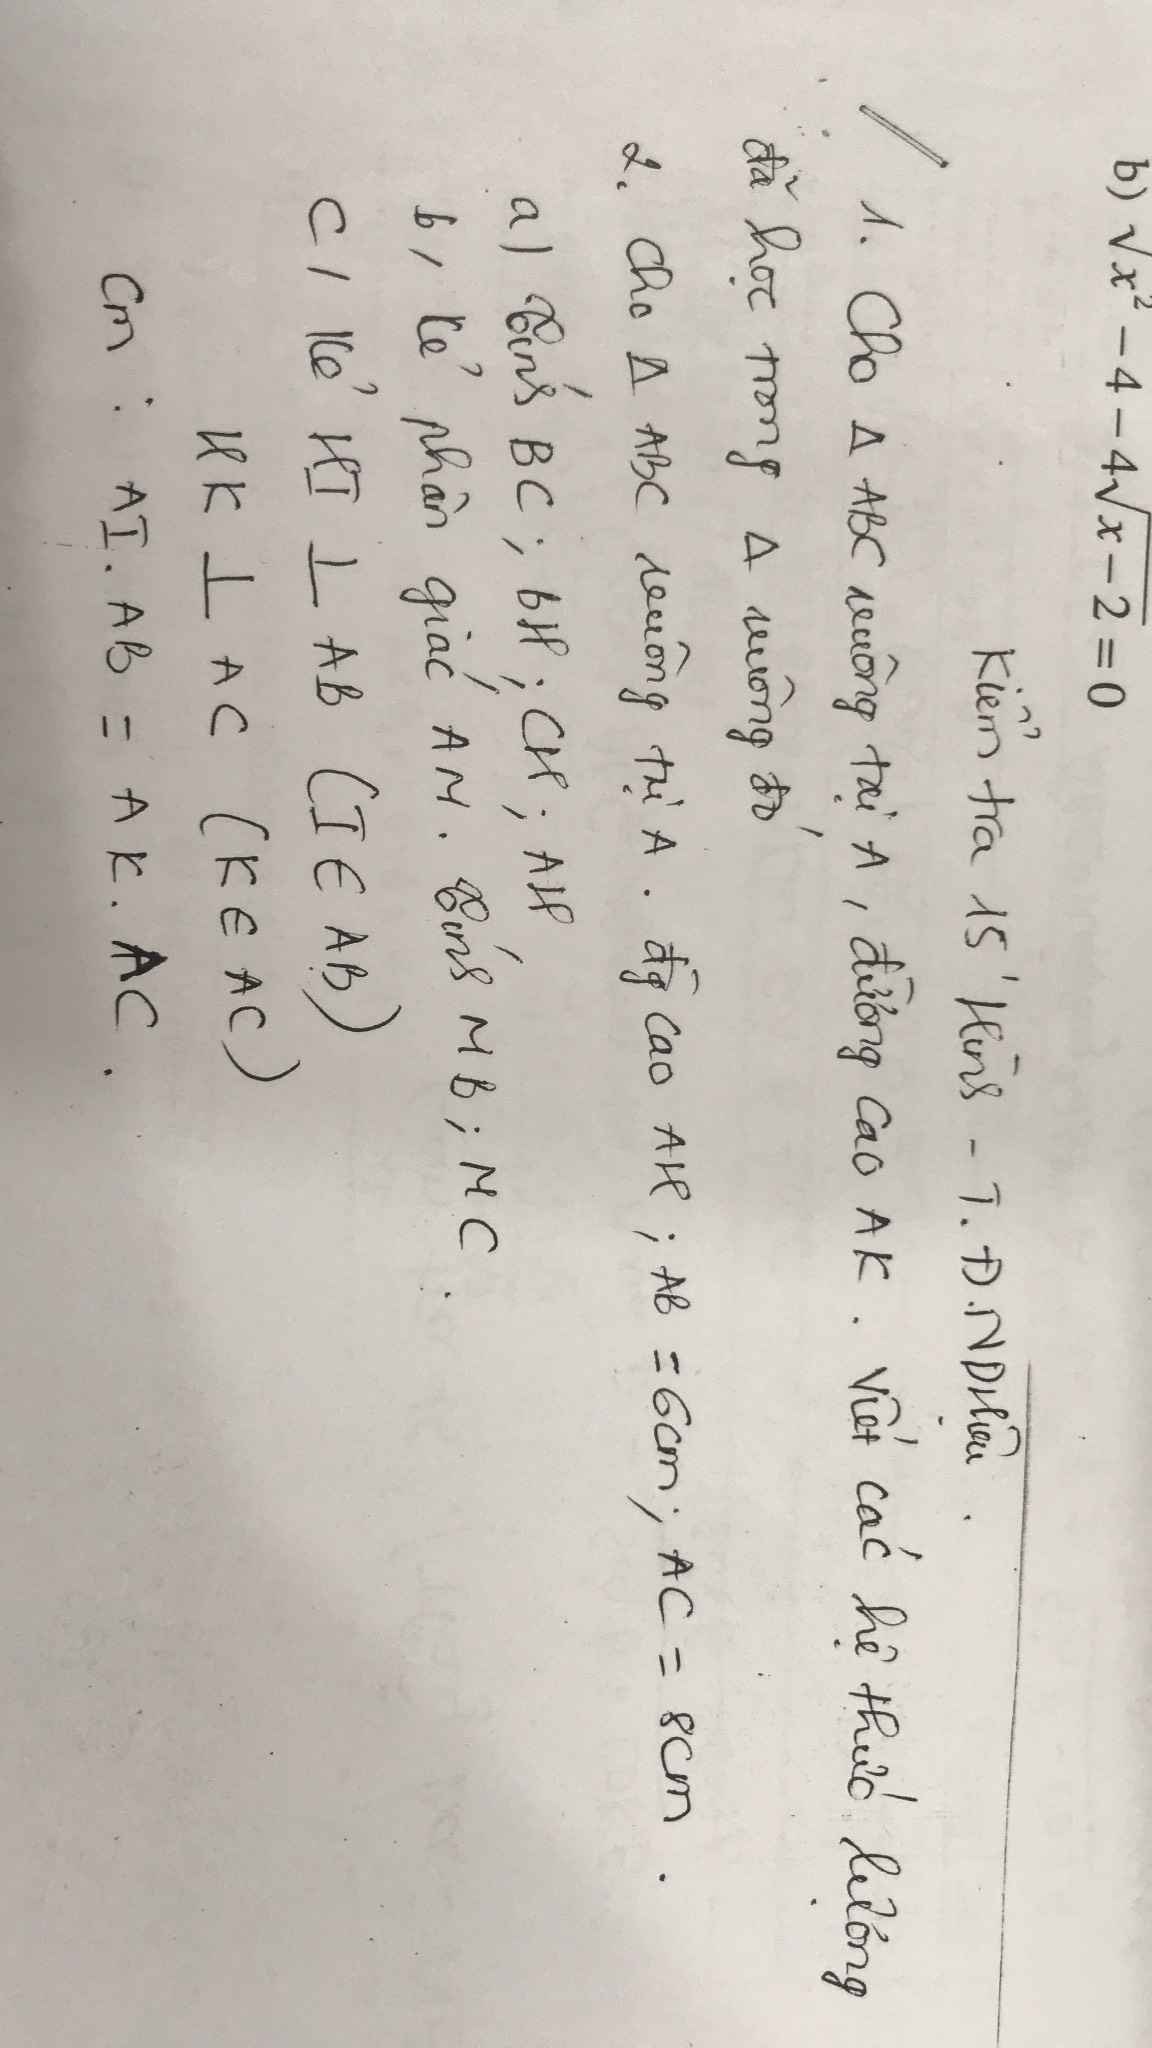 b) √x² − 4 − 4√x − 2 = 0
Kiểm tra 15' Hình - T.Đ.NDHiệu.
1. Cho Δ ABC vuông tại A, đường cao AK. Viết các hệ thức lượng
đã học trong Δ vuông đó
2. Cho Δ ABC vuông tại A. đg cao AH; AB = 6cm; AC = 8cm.
a) Tính BC; BH; CH; AH
b, Kẻ phân giác AM. Tính MB; MC.
C, Kẻ HI ⊥ AB (I ∈ AB)
HK ⊥ AC (K ∈ AC)
Cm: AI.AB = AK.AC.